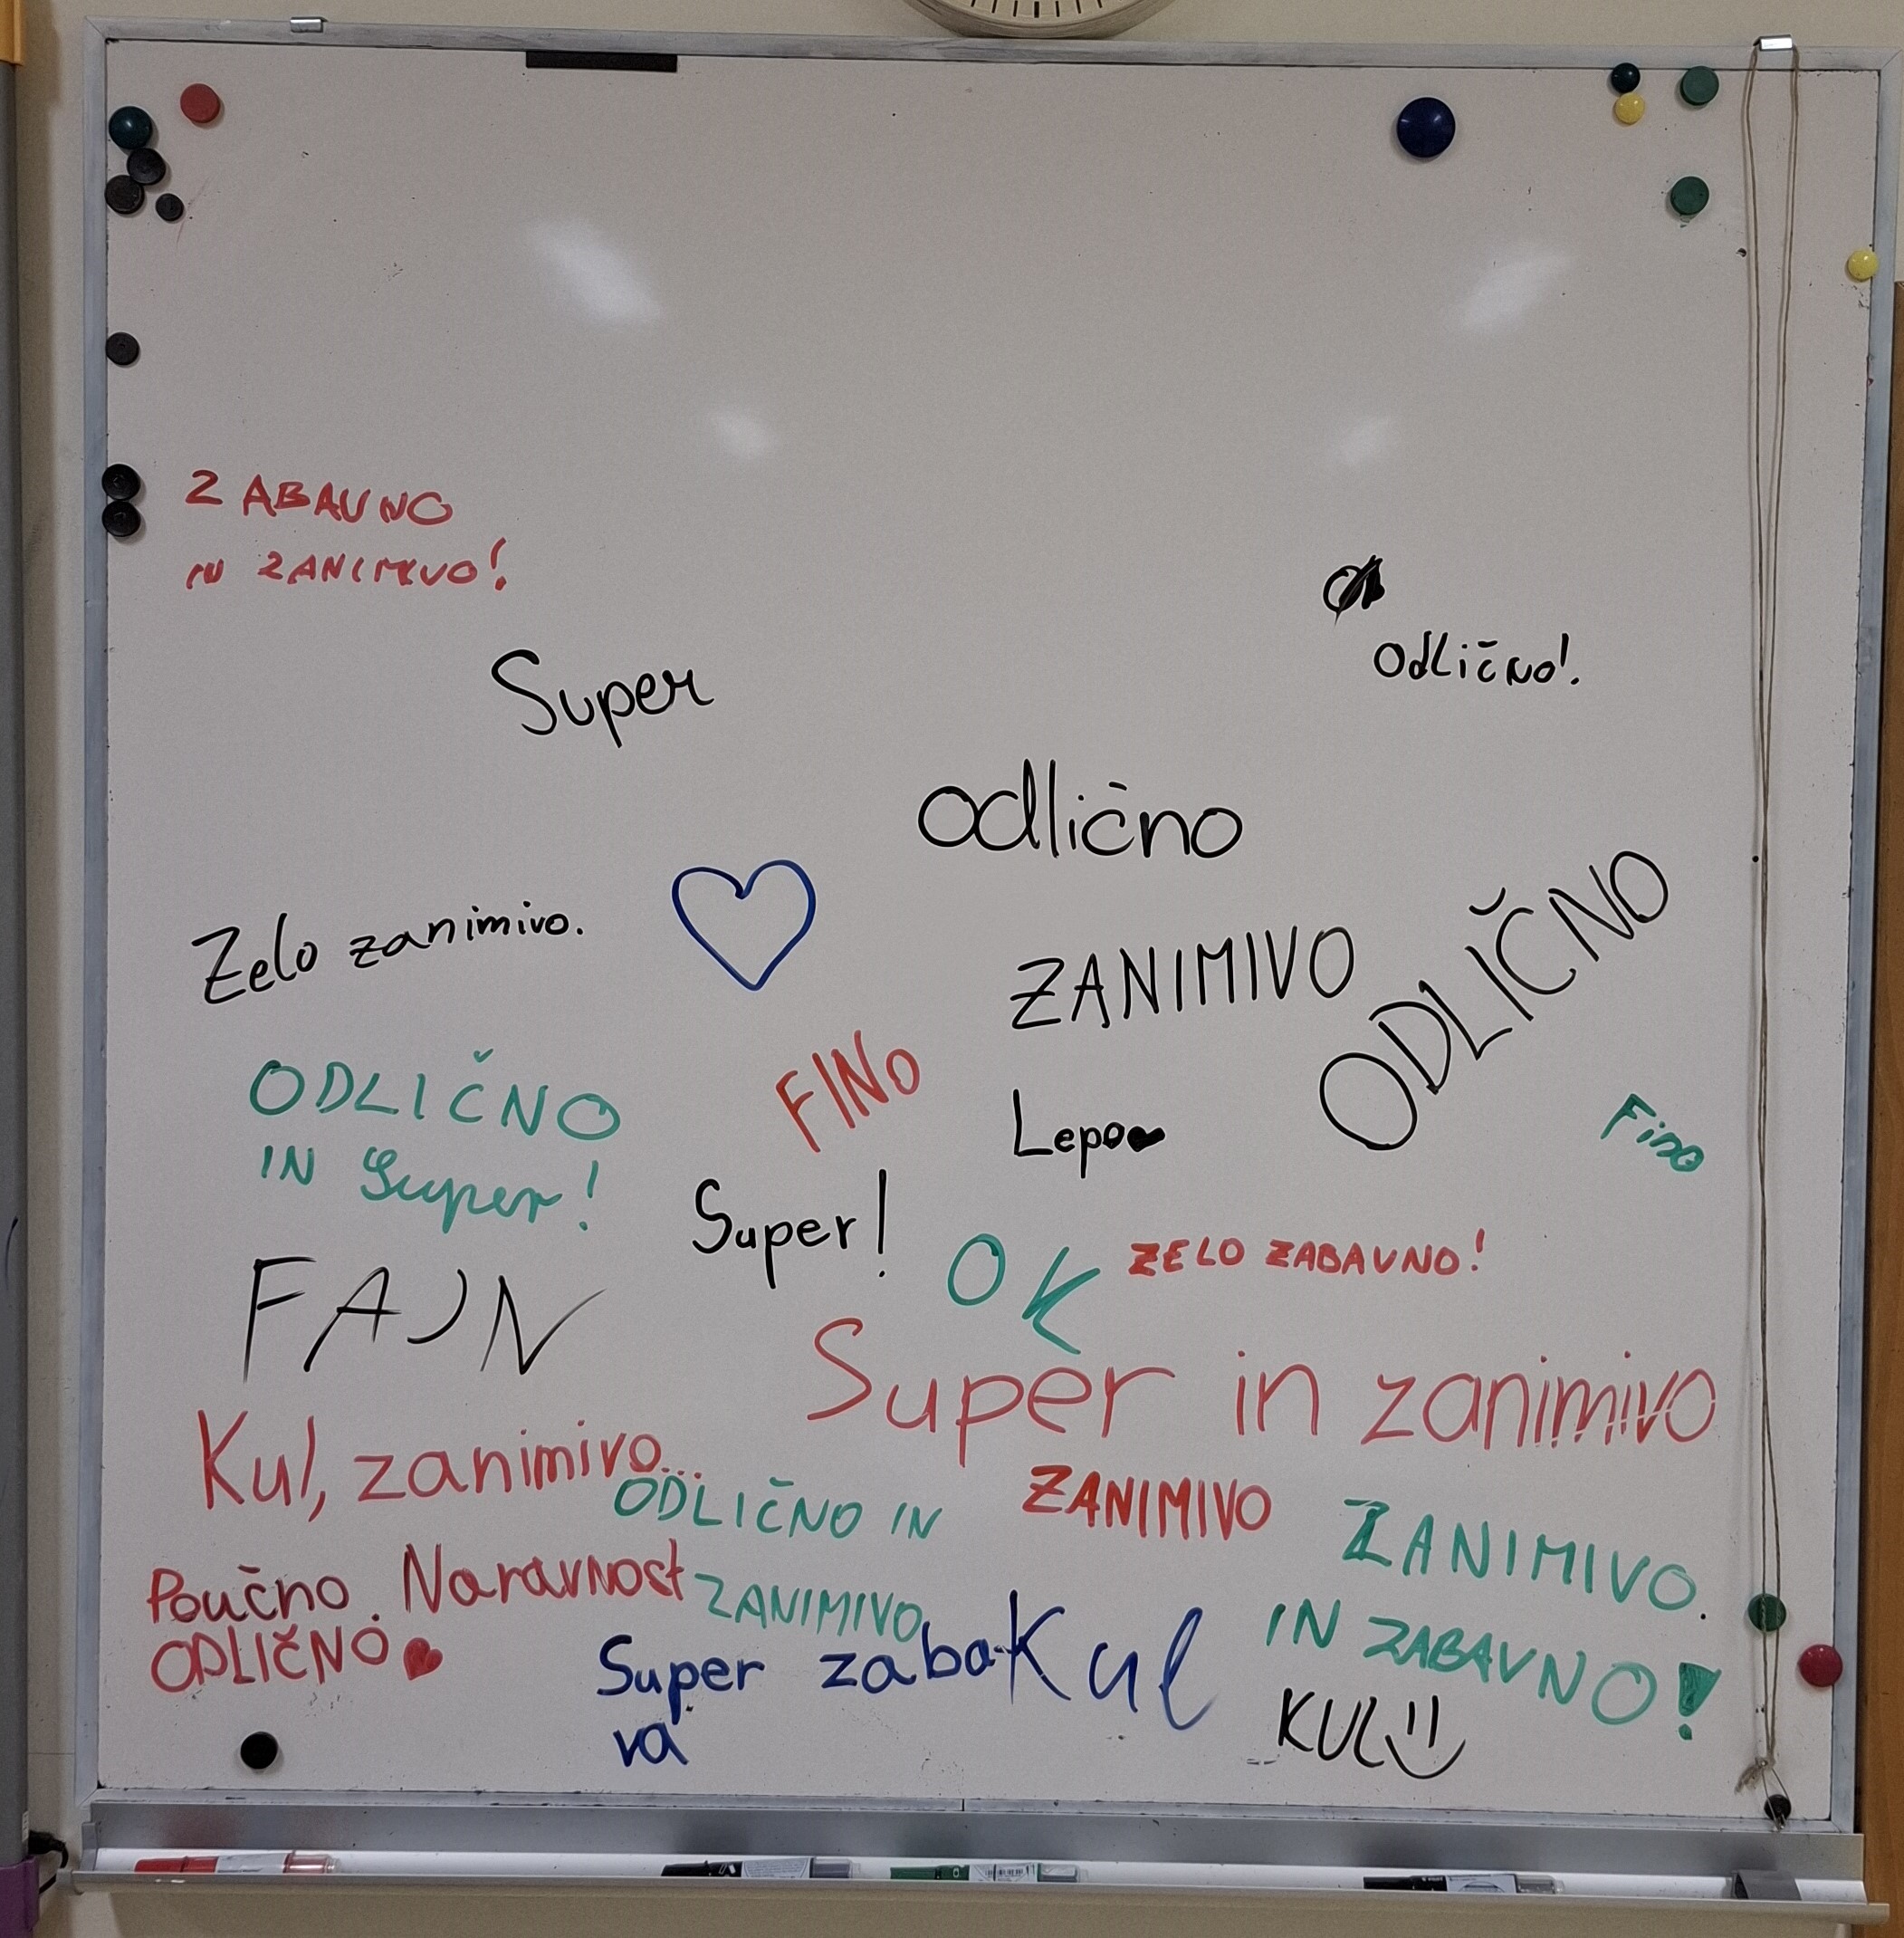 ZABAVNO
IN ZANIMIVO!
Odlično!
Super
odlično
Zelo zanimivo.
ZANIMIVO
ODLIČNO
ODLIČNO
IN Super!
FINO
Lepo
Fino
Super!
OK
ZELO ZABAVNO!
FAJN
Super in zanimivo
Kul, zanimivo...
ODLIČNO IN
ZANIMIVO
ZANIMIVO
ZANIMIVO.
IN ZABAVNO!
Poučno. Naravnost
ODLIČNO
Super zaba-
va
Kul
KUL